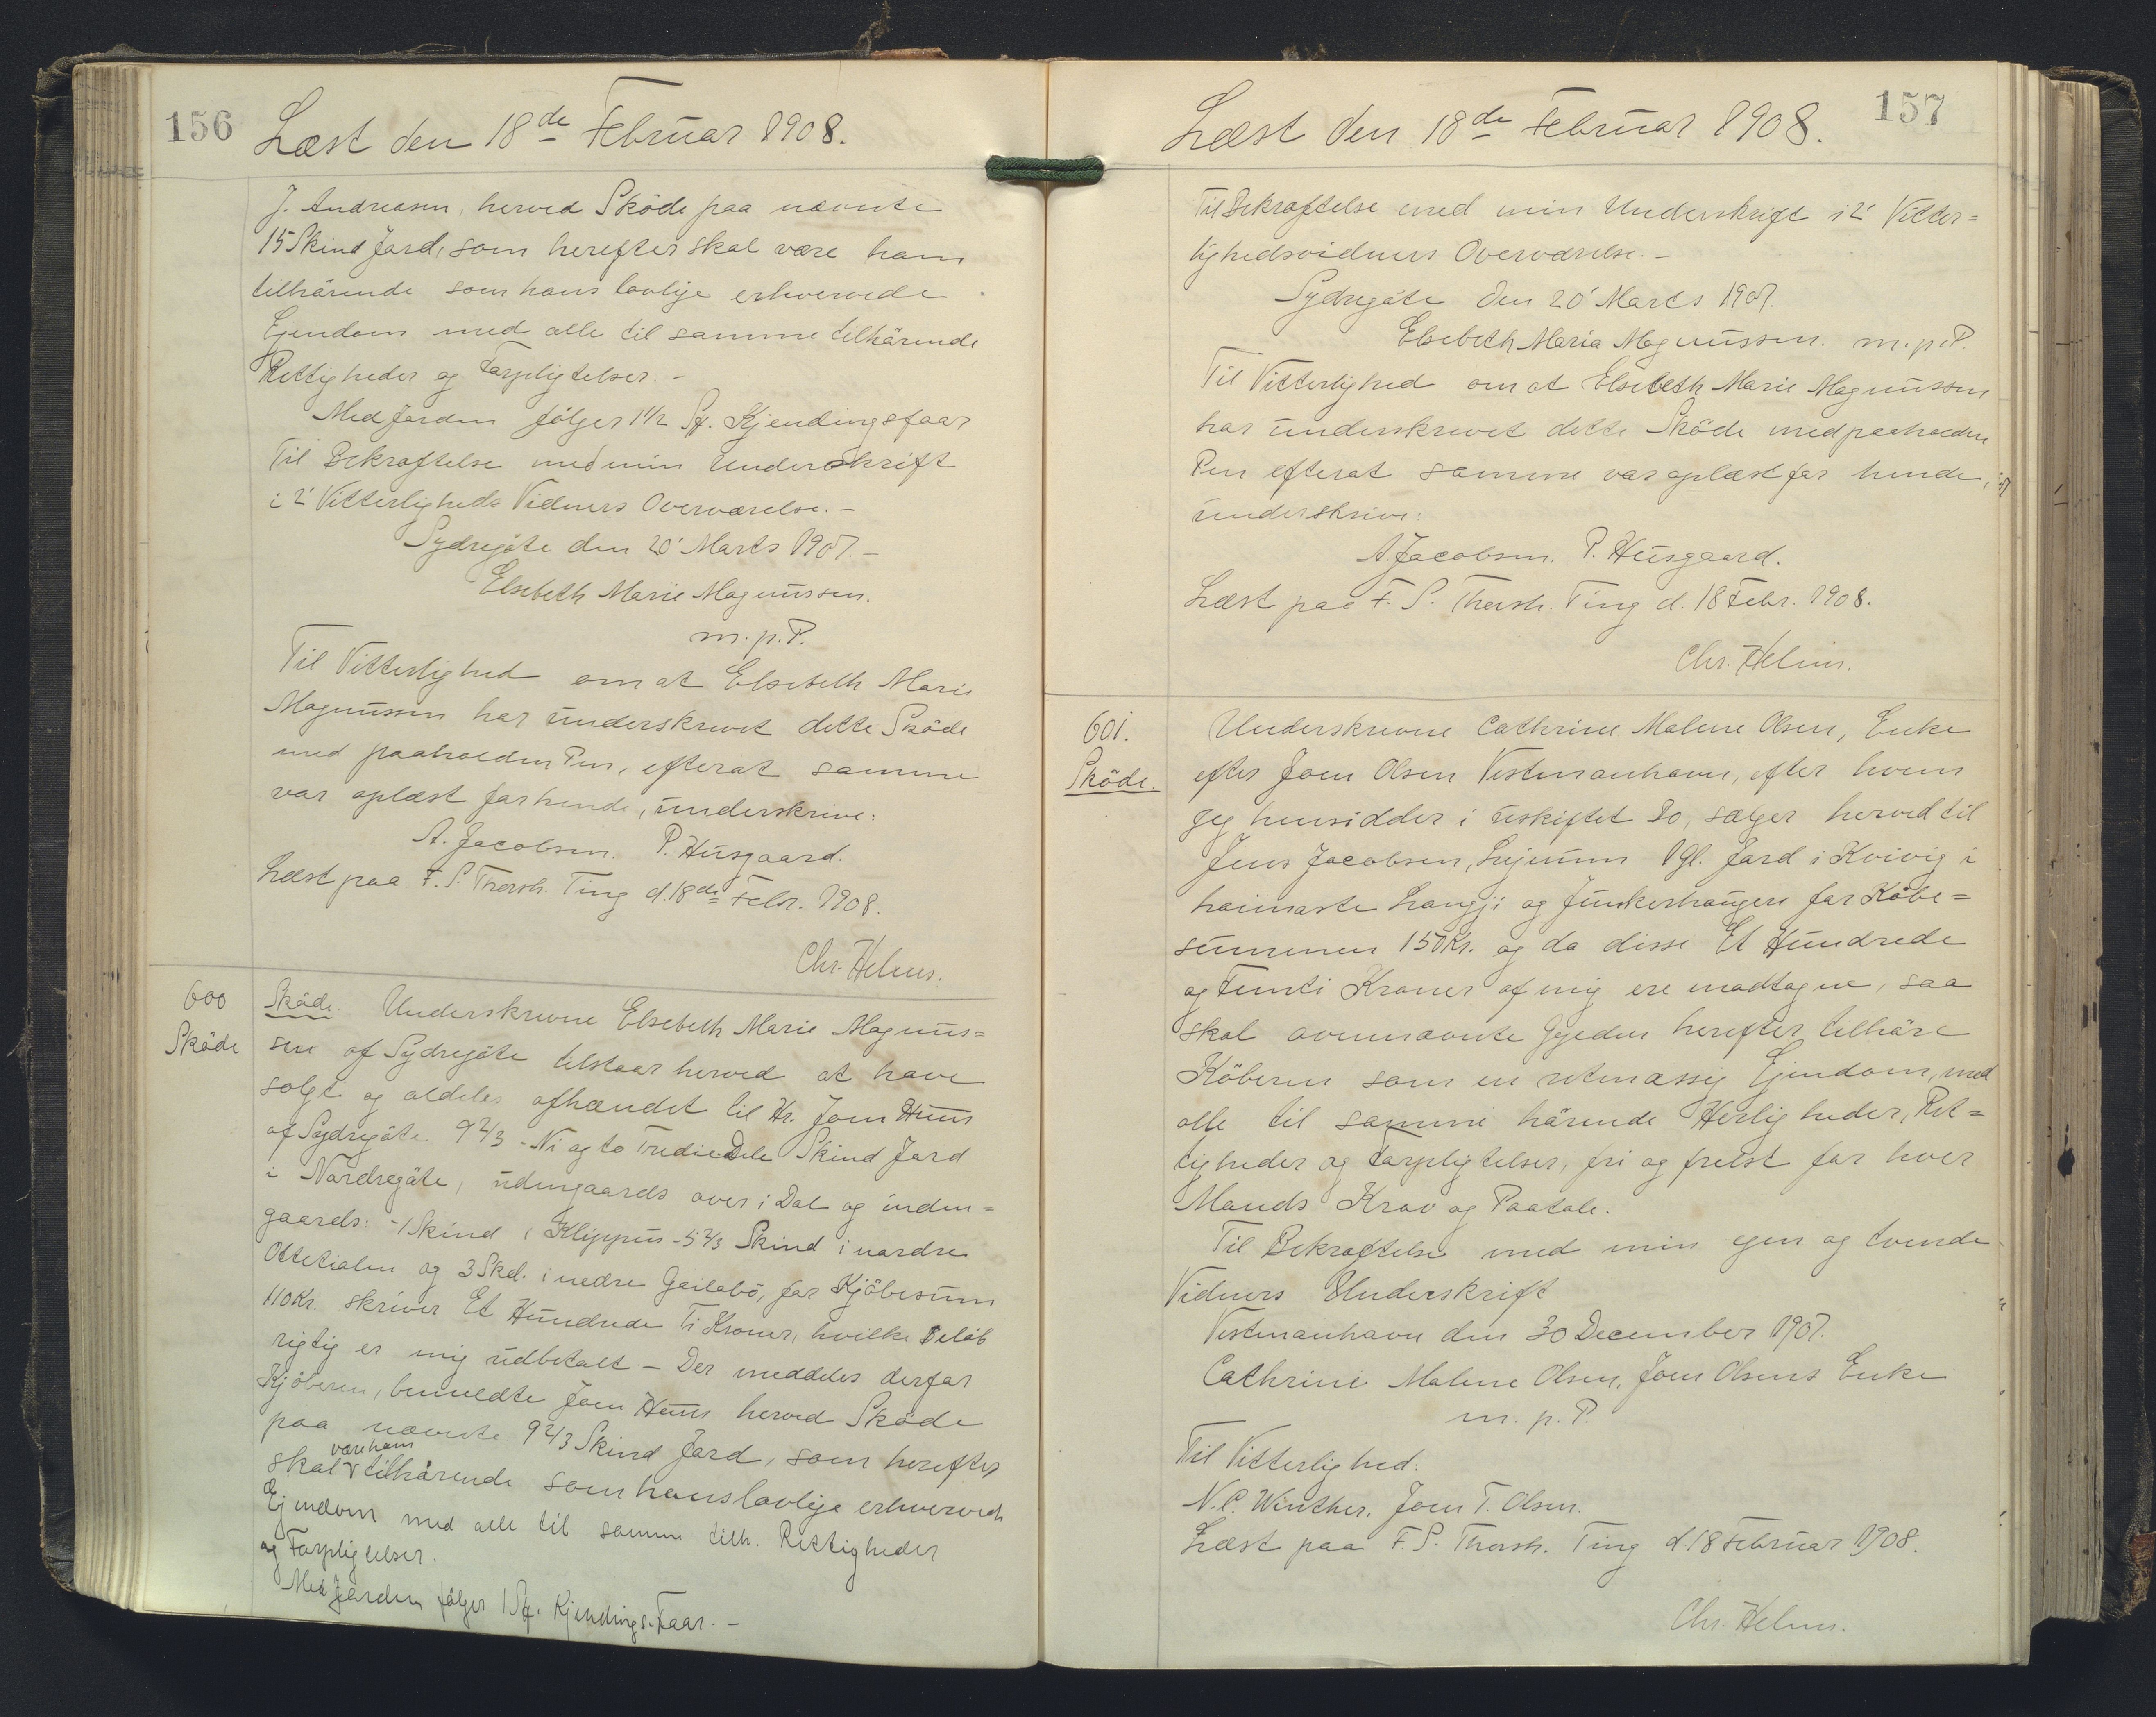 156
Læst den 18de Februar 1908.
J. Andreasen, herved Sköde paa nævnte
15 Skind Jord, som herefter skal være ham
tilhörende som hans lovlige erhvervede
Ejendom med alle til samme tilhörende
Rettigheder og Forpligtelser. -
Med Jorden fölger 1½ Sp. Kjendingsfaar
Til Bekræftelse med min Underskrift
i 2' Vitterligheds Vidners Overværelse. -
Sydregöte den 20' Marts 1907. -
Elsebeth Marie Magnussen.
m.p.P.
Til Vitterlighed om at Elsebeth Marie
Magnussen har underskrevet dette Sköde
med paaholden Pen, efterat samme
var oplæst for hende, underskrive:
A. Jacobsen. P. Husgaard.
Læst paa F. S. Thorsh. Ting d. 18de Febr. 1908.
Chr. Helms.
600
Sköde
Sköde. Underskrevne Elsebeth Marie Magnus=
sen af Sydregöte tilstaar herved at have
solgt og aldeles afhændet til Hr. Joen Huus
af Sydregöte 9⅔ - Ni og to Tredie Dele Skind Jord
i Nordregöte, udengaards over i Dal og inden=
gaards: -1 Skind i Klippun -5⅔ Skind i nordre
Ottetialen og 3 Skd. i nedre Geilabö, for Kjöbesum
110 Kr. skriver Et Hundrede Ti Kroner, hvilke Belöb
rigtig er mig udbetalt - Der meddeles derfor
Kjöberen, bemeldte Joen Huus herved Sköde
paa nævnte 9⅔ Skind Jord, som herefter
være ham
skal tilhörende som hans lovlige erhvervede
Ejendom med alle til samme tilh. Rettigheder
og Forpligtelser.
Med Jorden fölger 1 Sp. Kjendings-Faar. -
157
Læst den 18de Februar 1908.
Til Bekræftelse med min Underskrift i 2' Vitter=
lighedsvidners Overværelse. -
Sydregöte den 20' Marts 1907.
Elsebeth Maria Magnussen. m.p.P.
Til Vitterlighed om at Elsebeth Marie Magnussen
har underskrevet dette Sköde med paaholden
Pen efterat samme var oplæst for hende,
underskrive:
A. Jacobsen. P. Husgaard.
Læst paa F. S. Thorsh. Ting d. 18 Febr. 1908.
Chr. Helms.
601.
Sköde.
Underskrevne Cathrine Malene Olsen, Enke
efter Joen Olsen Vestmanhavn, efter hvem
jeg hensidder i uskiftet Bo, sælger herved til
Jens Jacobsen, Lujnum 1 gl. Jord i Kvivig i
haimaste Langji og Junkerhaugere for Köbe=
summen 150 Kr. og da disse Et Hundrede
og Femti Kroner af mig ere modtagne, saa
skal ovennævnte Gyeden herefter tilhöre
Köberen som en retmæssig Ejendom, med
alle til samme hörende Herligheder, Ret=
tigheder og Forpligtelser, fri og frelst for hver
Mands Krav og Paatale.
Til Bekræftelse med min egen og tvende
Vidners Underskrift
Vestmanhavn den 30 December 1907.
Cathrine Malene Olsen, Joen Olsens Enke
m. p. P.
Til Vitterlighed:
N. C. Winther. Joen T. Olsen.
Læst paa F. S. Thorsh. Ting d. 18 Februar 1908.
Chr. Helms.